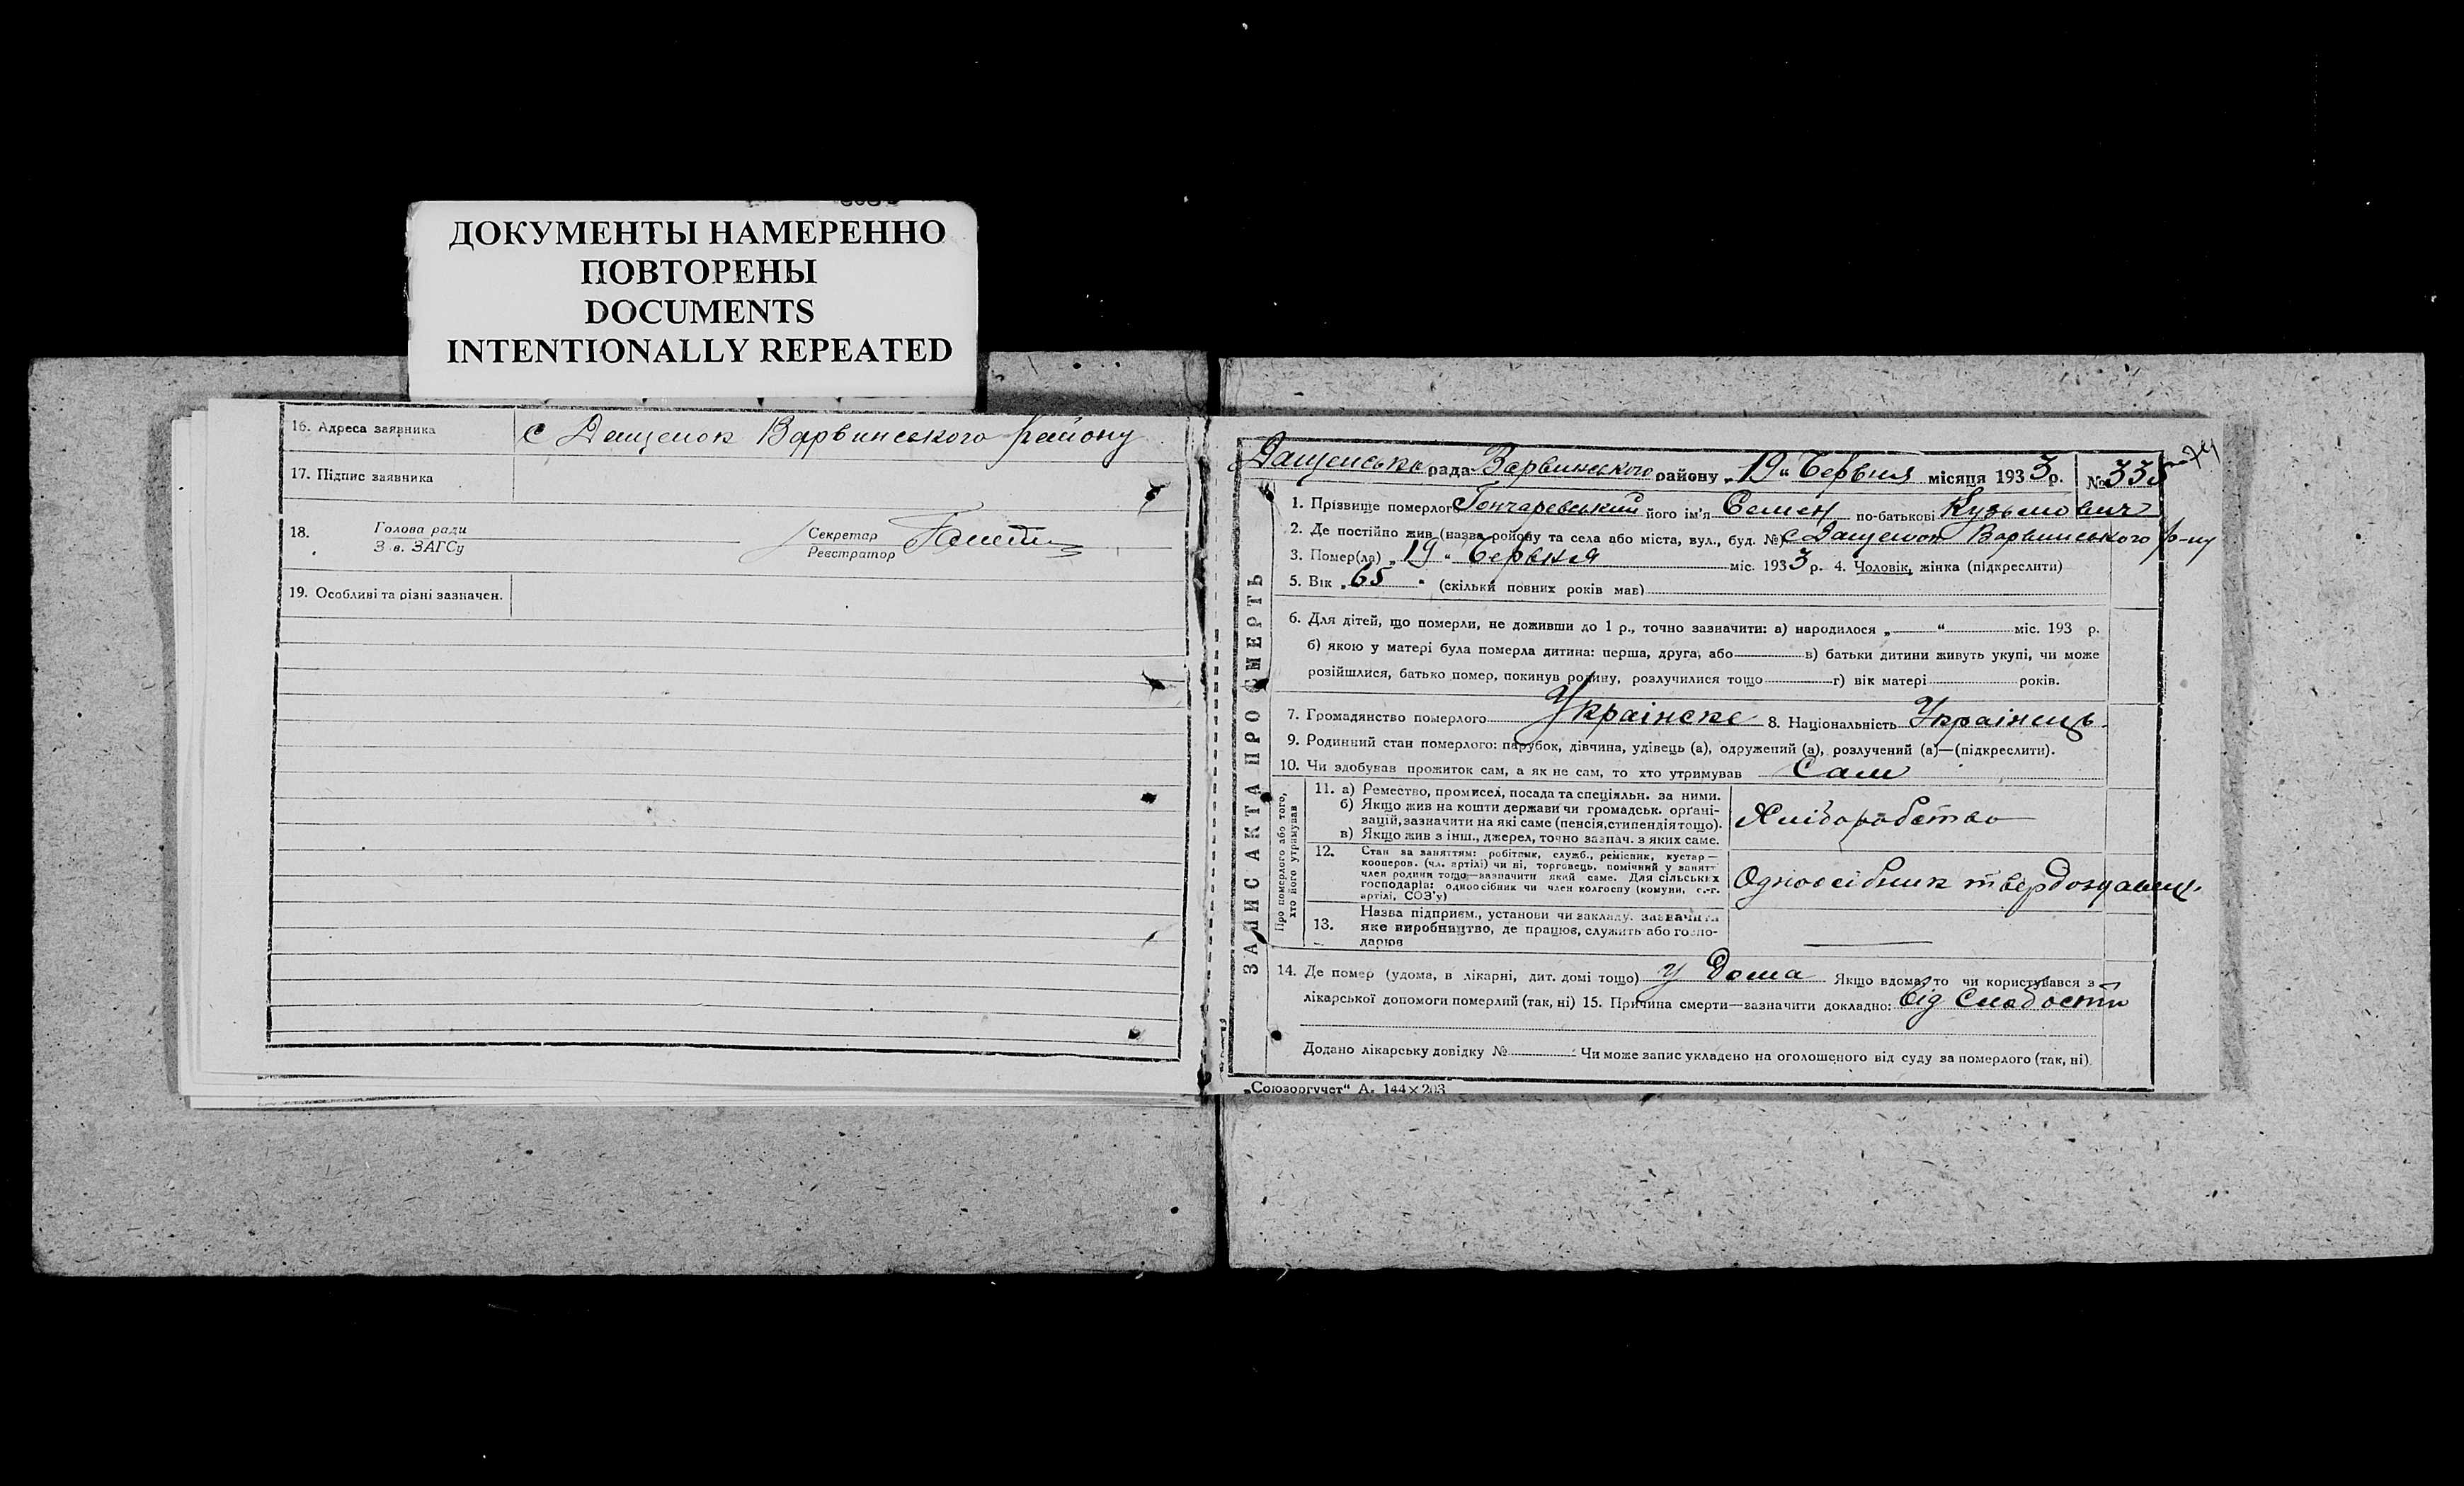 ДОКУМЕНТЫ НАМЕРЕННО
ПОВТОРЕНЫ
DOCUMENTS
INTENTIONALLY REPEATED
16. Адреса заявника с Дащенок Варвинського району
17. Підпис заявника
18. Голова ради
З в. ЗАГСу
Секретар
Реєстратор
19. Особливі та різні зазначен.
ЗАПИС АКТА ПРО СМЕРТЬ
Дащенська рада Варвинського району „19“ Червня місяця 1933 р. № 335
1. Прізвище померлого Гончаревський його ім'я Семен по-батькові Кузьмович
2. Де постійно жив (назва району та села або міста, вул., буд. №) с Дащенок Варвинського р-ну
3. Помер(ла) „19“ Червня міс. 1933 р. 4. Чоловік, жінка (підкреслити)
5. Вік „65“ (скільки повних років мав)
6. Для дітей, що померли, не доживши до 1 р., точно зазначити: а) народилося „ “ міс. 193 р.
б) якою у матері була померла дитина: перша, друга, або в) батьки дитини живуть укупі, чи може
розійшлися, батько помер, покинув родину, розлучилися тощо г) вік матері років.
7. Громадянство померлого Українске 8. Національність Українець
9. Родинний стан померлого: парубок, дівчина, удівець (а), одружений (а), розлучений (а)—(підкреслити).
10. Чи здобував прожиток сам, а як не сам, то хто утримував Сам
Про померлого або того, хто його утримував
11. а) Ремество, промисел, посада та спеціяльн. за ними.
б) Якщо жив на кошти держави чи громадськ. органі-
зацій, зазначити на які саме (пенсія, стипендія тощо).
в) Якщо жив з інш., джерел, точно зазнач. з яких саме.
Хліборобство
12. Стан за заняттям: робітник, служб., ремісник, кустар—
кооперов. (чл. артілі) чи ні, торговець, помічний у занятт
член родини тощо—зазначити який саме. Для сільських
господарів: одноосібник чи член колгоспу (комуни, с.-г.
артілі, СОЗ'у)
Одноосібник твердоздавець
13. Назва підприєм., установи чи закладу. зазначити
яке виробництво, де працює, служить або госпо-
дарює
14. Де помер (удома, в лікарні, дит. домі тощо) у дома Якщо вдома, то чи користувався з
лікарської допомоги померлий (так, ні) 15. Причина смерти—зазначити докладно: від слабости
Додано лікарську довідку № Чи може запис укладено на оголошеного від суду за померлого (так, ні)
„Союзоргучет“ А. 144×203